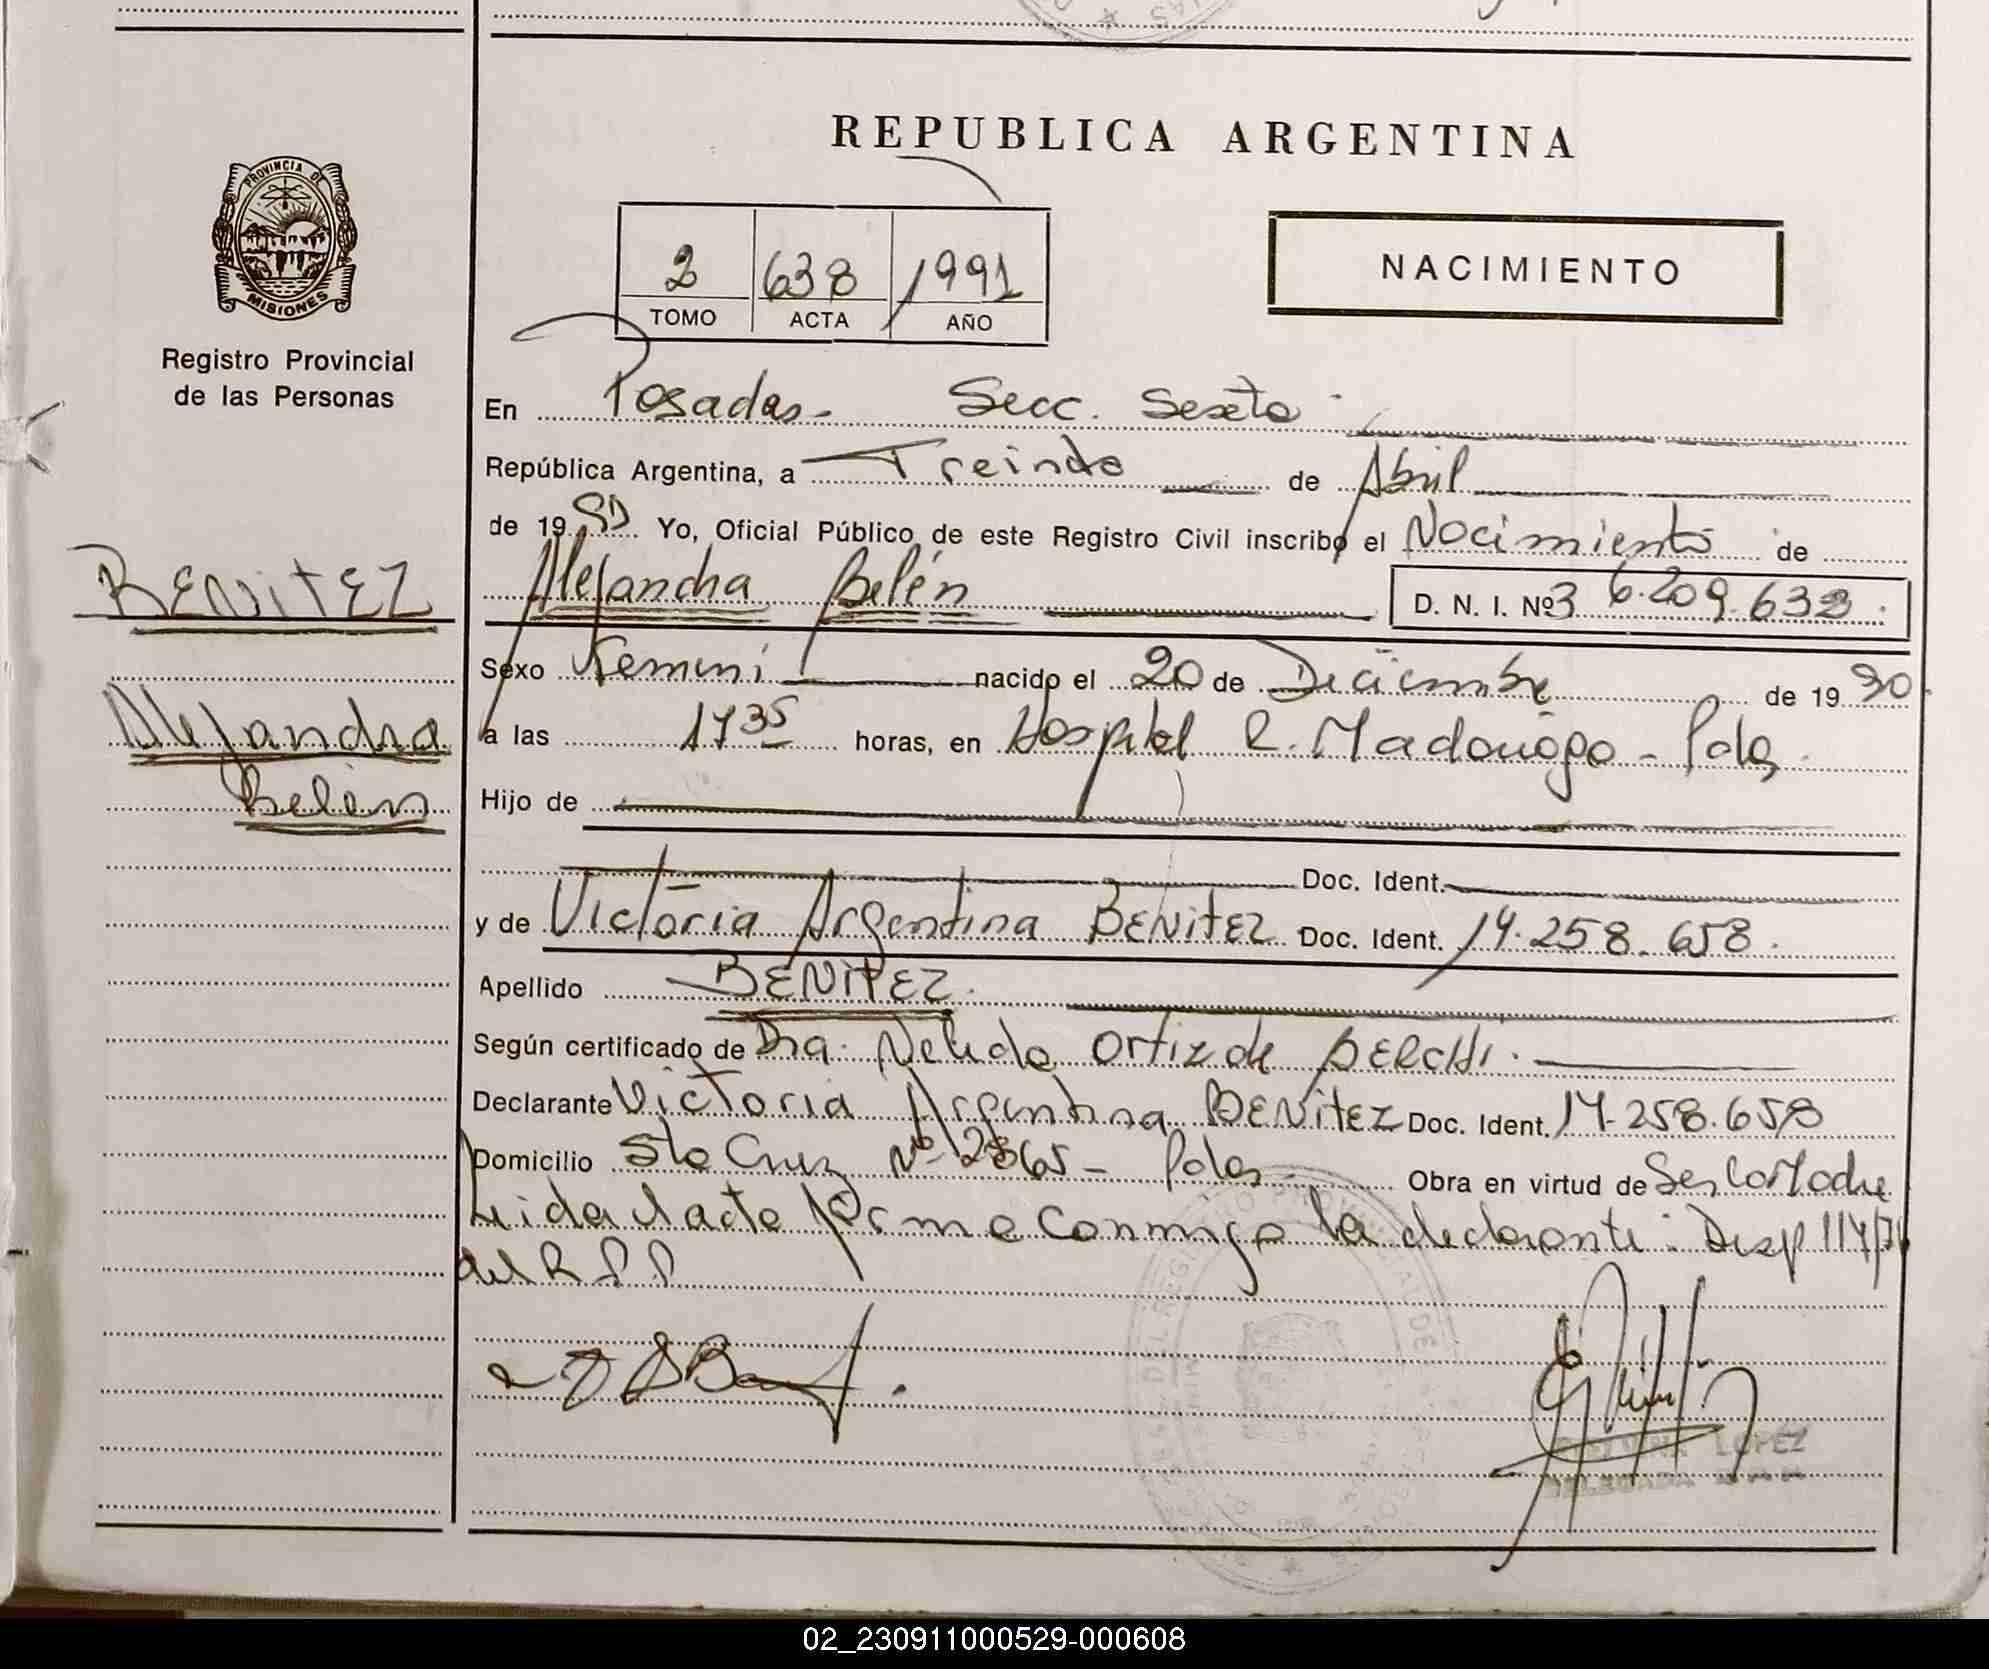 REPUBLICA ARGENTINA
PROVINCIA DE
MISIONES
Registro Provincial
de las Personas
2 638 1991
TOMO ACTA AÑO
NACIMIENTO
En Posadas - Secc. Sexta
República Argentina, a Treinta de Abril
de 1991 Yo, Oficial Público de este Registro Civil inscribo el Nacimiento de
BENITEZ
Alejandra Belén D. N. I. Nº 36.209.638.
Sexo Femeni nacido el 20 de Diciembre de 1990
Alejandra
Belén
a las 17 35 horas, en Hospital R. Madariaga - Pdas.
Hijo de
Doc. Ident.
y de Victoria Argentina BENITEZ Doc. Ident. 14.258.658.
Apellido BENITEZ.
Según certificado de Dra. Nelida Ortiz de BERCHI.
Declarante Victoria Argentina BENITEZ Doc. Ident. 14.258.658
Domicilio Sta Cruz Nº 2865 - Pdas. Obra en virtud de Ser la Madre
Leida el acta firma conmigo la declarante: Disp 114/
del R P P
LOPEZ
DELEGADA
02_230911000529-000608